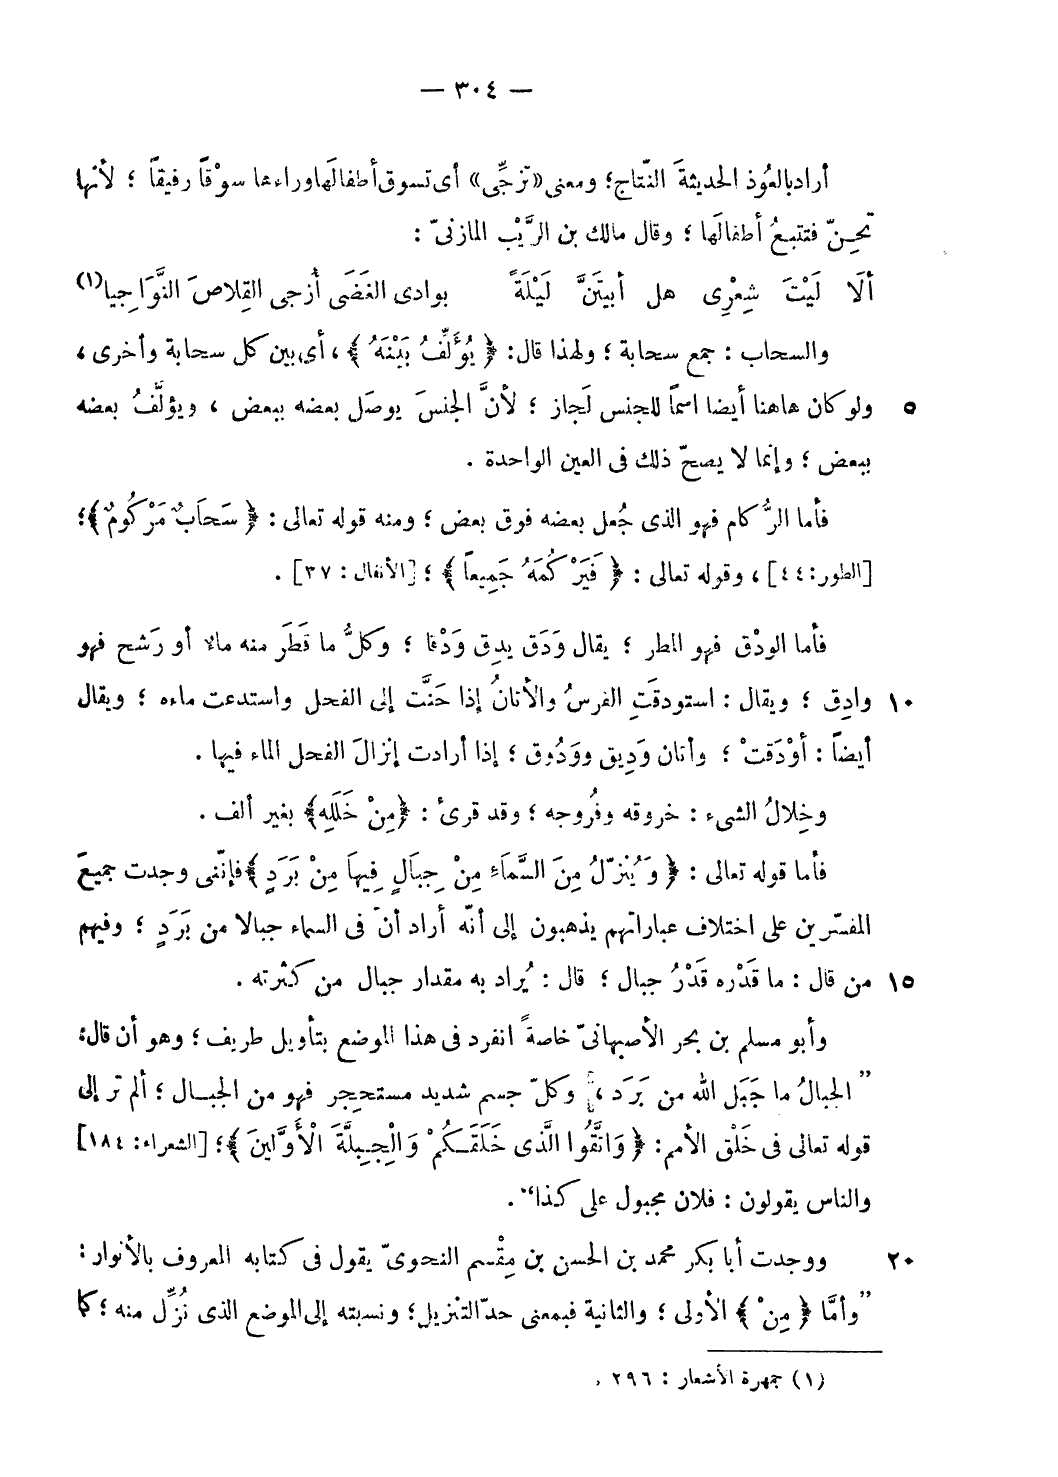 — ٣٠٤ —
أراد بالعُوذ الحديثةَ النّتاج؛ ومعنى «تزجِّى» أى تسوق أطفالَها وراءها سوْقاً رفيقاً ؛ لأنها
تحِنّ فتتبعُ أطفالَها ؛ وقال مالك بن الرَّيْب المازنىّ :
ألَا لَيْتَ شِعْرِى هل أبيتَنَّ لَيْلَةً بوادى الغَضَى أُزجى القِلاصَ النَّوَاجيا(١)
والسحاب : جمع سحابة ؛ ولهذا قال: ﴿ يُؤَلِّفُ بَيْنَهُ ﴾ ، أى بين كل سحابة وأخرى ،
٥ ولو كان هاهنا أيضا اسماً للجنس لَجاز ؛ لأنَّ الجنسَ يوصَل بعضه ببعض ، ويؤلَّفُ بعضه
ببعض ؛ وإنما لا يصحّ ذلك فى العين الواحدة .
فأما الرُّكام فهو الذى جُعل بعضه فوق بعض ؛ ومنه قوله تعالى : ﴿ سَحَابٌ مَرْكُومٌ ﴾؛
[الطور: ٤٤] ، وقوله تعالى : ﴿ فَيَرْكُمَهُ جَمِيعاً ﴾ ؛ [الأنفال : ٣٧] .
فأما الودْق فهو المطر ؛ يقال وَدَق يدِق وَدْقا ؛ وكلُّ ما قَطَر منه ماء أو رَشح فهو
١٠ وادِق ؛ ويقال : استودقَتِ الفرسُ والأتانُ إذا حَنَّت إلى الفحل واستدعت ماءه ؛ ويقال
أيضاً : أوْدَقتْ ؛ وأتان وَدِيق ووَدُوق ؛ إذا أرادت إنزالَ الفحل الماء فيها .
وخِلالُ الشىء : خروقه وفُروجه ؛ وقد قرئ : ﴿مِنْ خَلَلِهِ﴾ بغير ألف .
فأما قوله تعالى : ﴿ وَيُنَزِّلُ مِنَ السَّمَاءِ مِنْ جِبَالٍ فِيهَا مِنْ بَرَدٍ ﴾ فإنّنى وجدت جميعَ
المفسّرين على اختلاف عباراتهم يذهبون إلى أنّه أراد أنّ فى السماء جبالا من بَرَدٍ ؛ وفيهم
١٥ من قال : ما قَدْره قَدْرُ جبال ؛ قال : يُراد به مقدار جبال من كثرته .
وأبو مسلم بن بحر الأصبهانىّ خاصةً انفرد فى هذا الموضع بتأويل طريف ؛ وهو أن قال:
” الجبالُ ما جَبَل الله من بَرَد ، وكلّ جسم شديد مستحجِر فهو من الجبال ؛ ألم ترَ إلى
قوله تعالى فى خَلْق الأمم: ﴿ وَاتَّقُوا الَّذى خَلَقَكُمْ وَالْجِبِلَّةَ الْأَوَّلينَ ﴾؛ [الشعراء: ١٨٤]
والناس يقولون : فلان مجبول على كذا“ .
٢٠ ووجدت أبا بكر محمد بن الحسن بن مِقْسم النحوىّ يقول فى كتابه المعروف بالأنوار :
”وأمَّا ﴿ مِنْ ﴾ الأولى ؛ والثانية فبمعنى حدّ التنزيل؛ ونسبته إلى الموضع الذى نُزِّل منه ؛ كما
(١) جمهرة الأشعار : ٢٩٦ .